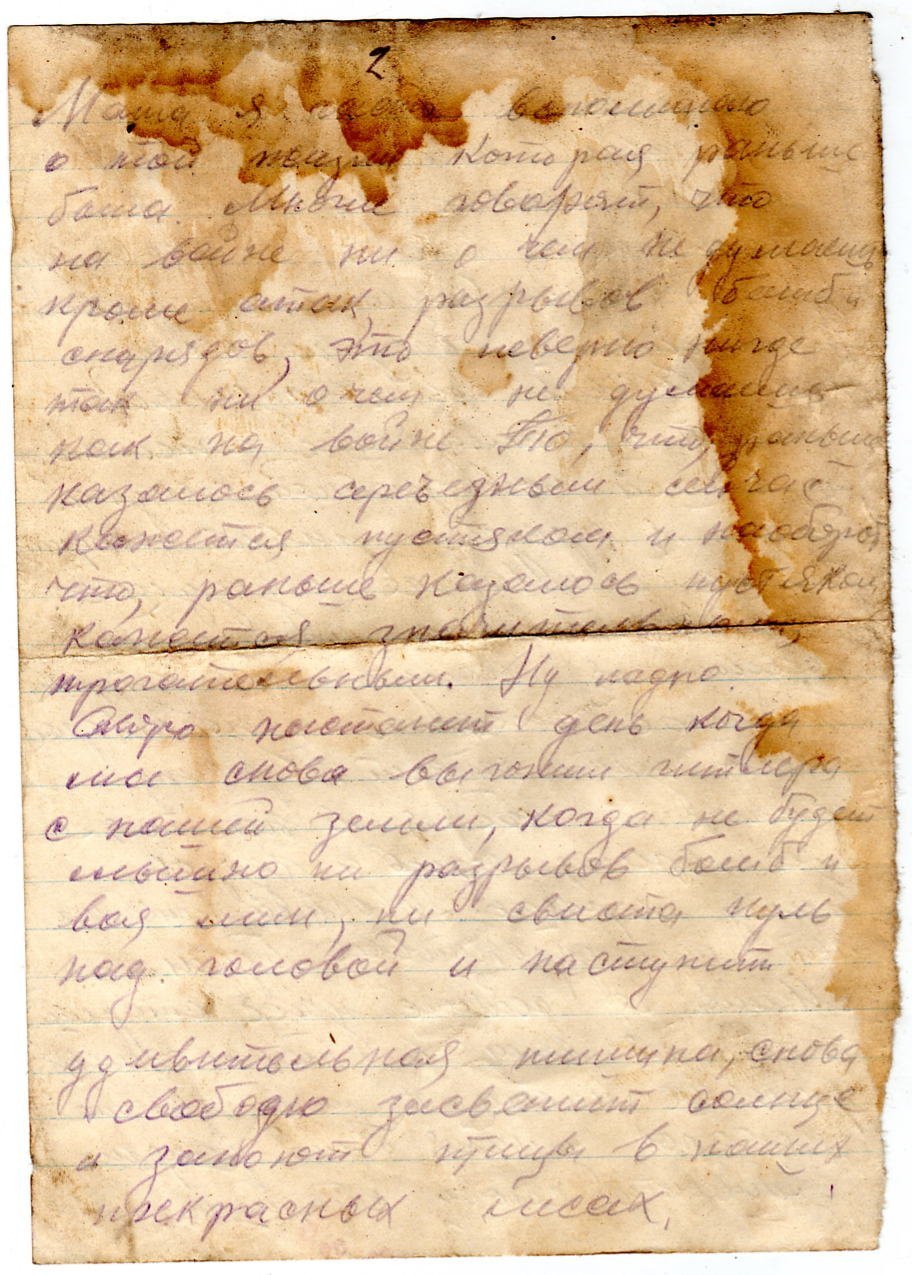 2
Маша я часто вспоминаю
о той жизни которая раньше
была. Многие говорят, что
на войне ни о чем не думаешь
кроме атак, разрывов бомб и
снарядов, это неверно нигде
так ни о чем не думаешь
как на войне То, что, раньше
казалось серьезным сейчас
кажется пустяком и наоборот
что, раньше казалось пустяком
кажется значительным,
трогательным. Ну ладно
Скоро настанит день когда
мы снова выгоним гитлера
с нашей земли, когда не будет
слышно ни разрывов бомб и
воя мин, ни свиста пуль
над головой и наступит
удивительная тишина, снова
свободно засветит солнце
и запоют птицы в наших
прекрасных лесах.